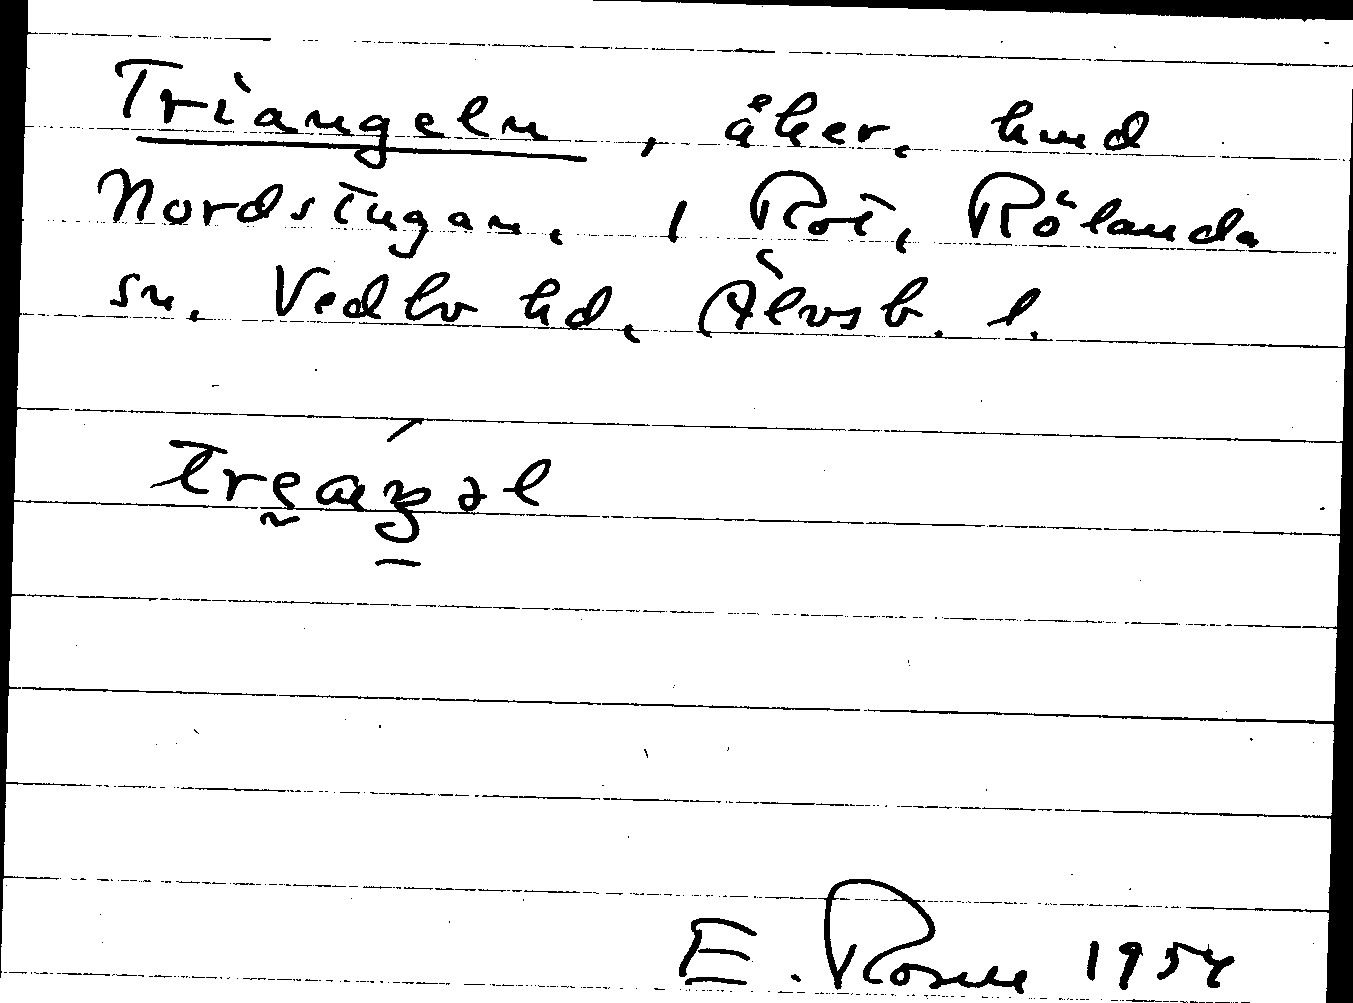 Triangeln, åker, hmd
Nordstugan, 1 Rot, Rölanda
sn, Vedbo hd, Älvsb. l.
E. Rosen 1954